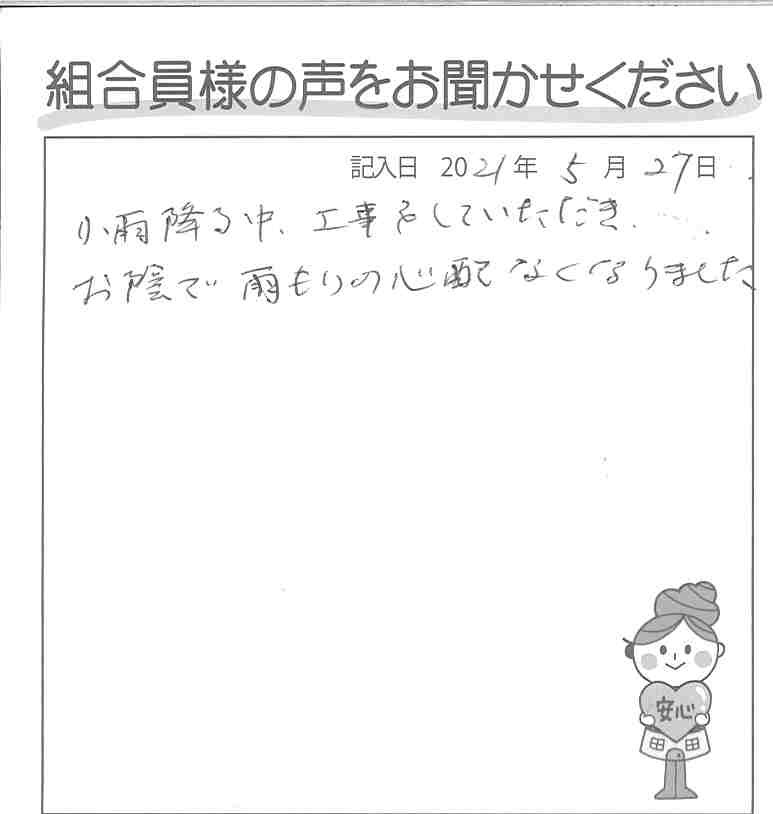 組合員様の声をお聞かせください
記入日 2021年 5月 27日
小雨降る中、工事をしていただき、
お陰で雨もりの心配なくなりました
安心